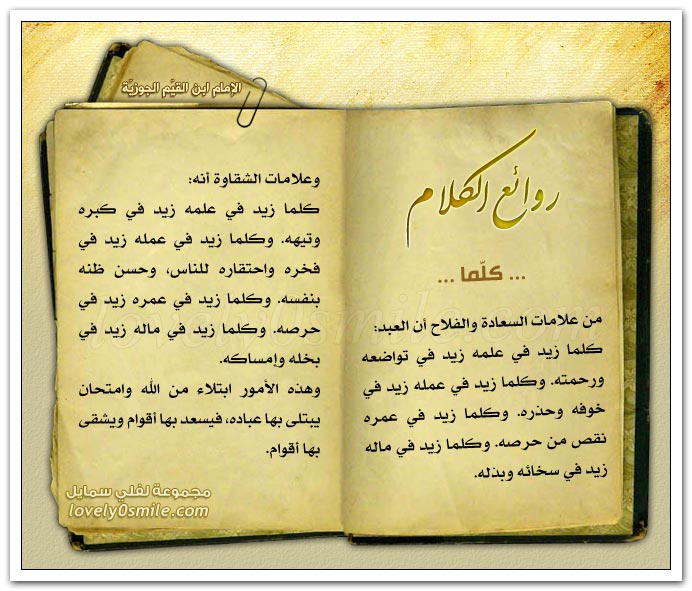 الإمام ابن القيَّم الجوزيَّة
روائع الكلام
... كلّما ...
من علامات السعادة والفلاح أن العبد:
كلما زيد في علمه زيد في تواضعه
ورحمته. وكلما زيد في عمله زيد في
خوفه وحذره. وكلما زيد في عمره
نقص من حرصه. وكلما زيد في ماله
زيد في سخائه وبذله.
وعلامات الشقاوة أنه:
كلما زيد في علمه زيد في كبره
وتيهه. وكلما زيد في عمله زيد في
فخره واحتقاره للناس، وحسن ظنه
بنفسه. وكلما زيد في عمره زيد في
حرصه. وكلما زيد في ماله زيد في
بخله وإمساكه.
وهذه الأمور ابتلاء من الله وامتحان
يبتلى بها عباده، فيسعد بها أقوام ويشقى
بها أقوام.
مجموعة لفلي سمايل
lovely0smile.com